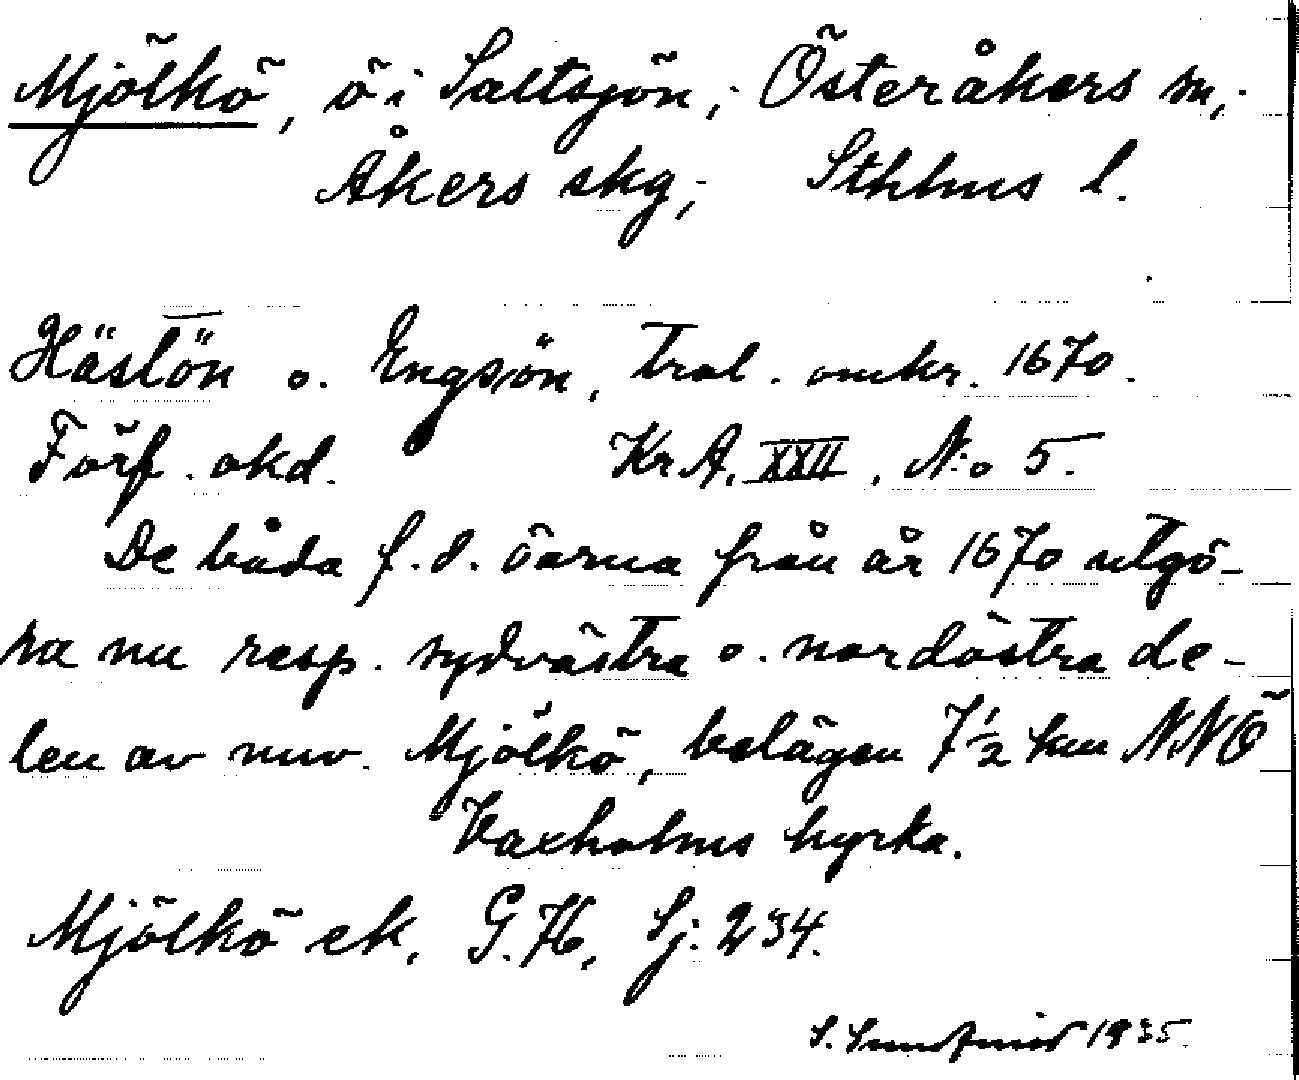 Mjölkö, ö i Saltsjön; Österåkers sn,
Åkers skg; Sthlms l.
Hästön o. Engsön, trol. omkr. 1670.
Förf. okd. Kr A. XXII, N:o 5.
De båda f.d. öarna från år 1670 utgö-
ra nu resp. sydvästra o. nordöstra de-
len av nuv. Mjölkö, belägen 7½ km NNÖ
Vaxholms kyrka.
Mjölkö ek. G. 76, Sj: 234.
S. 1935.